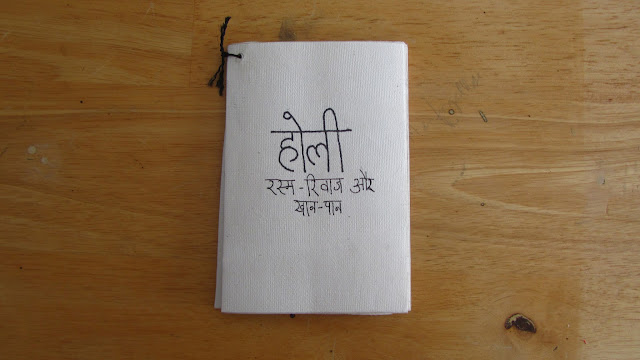 होली
रस्म-रिवाज और
खान-पान